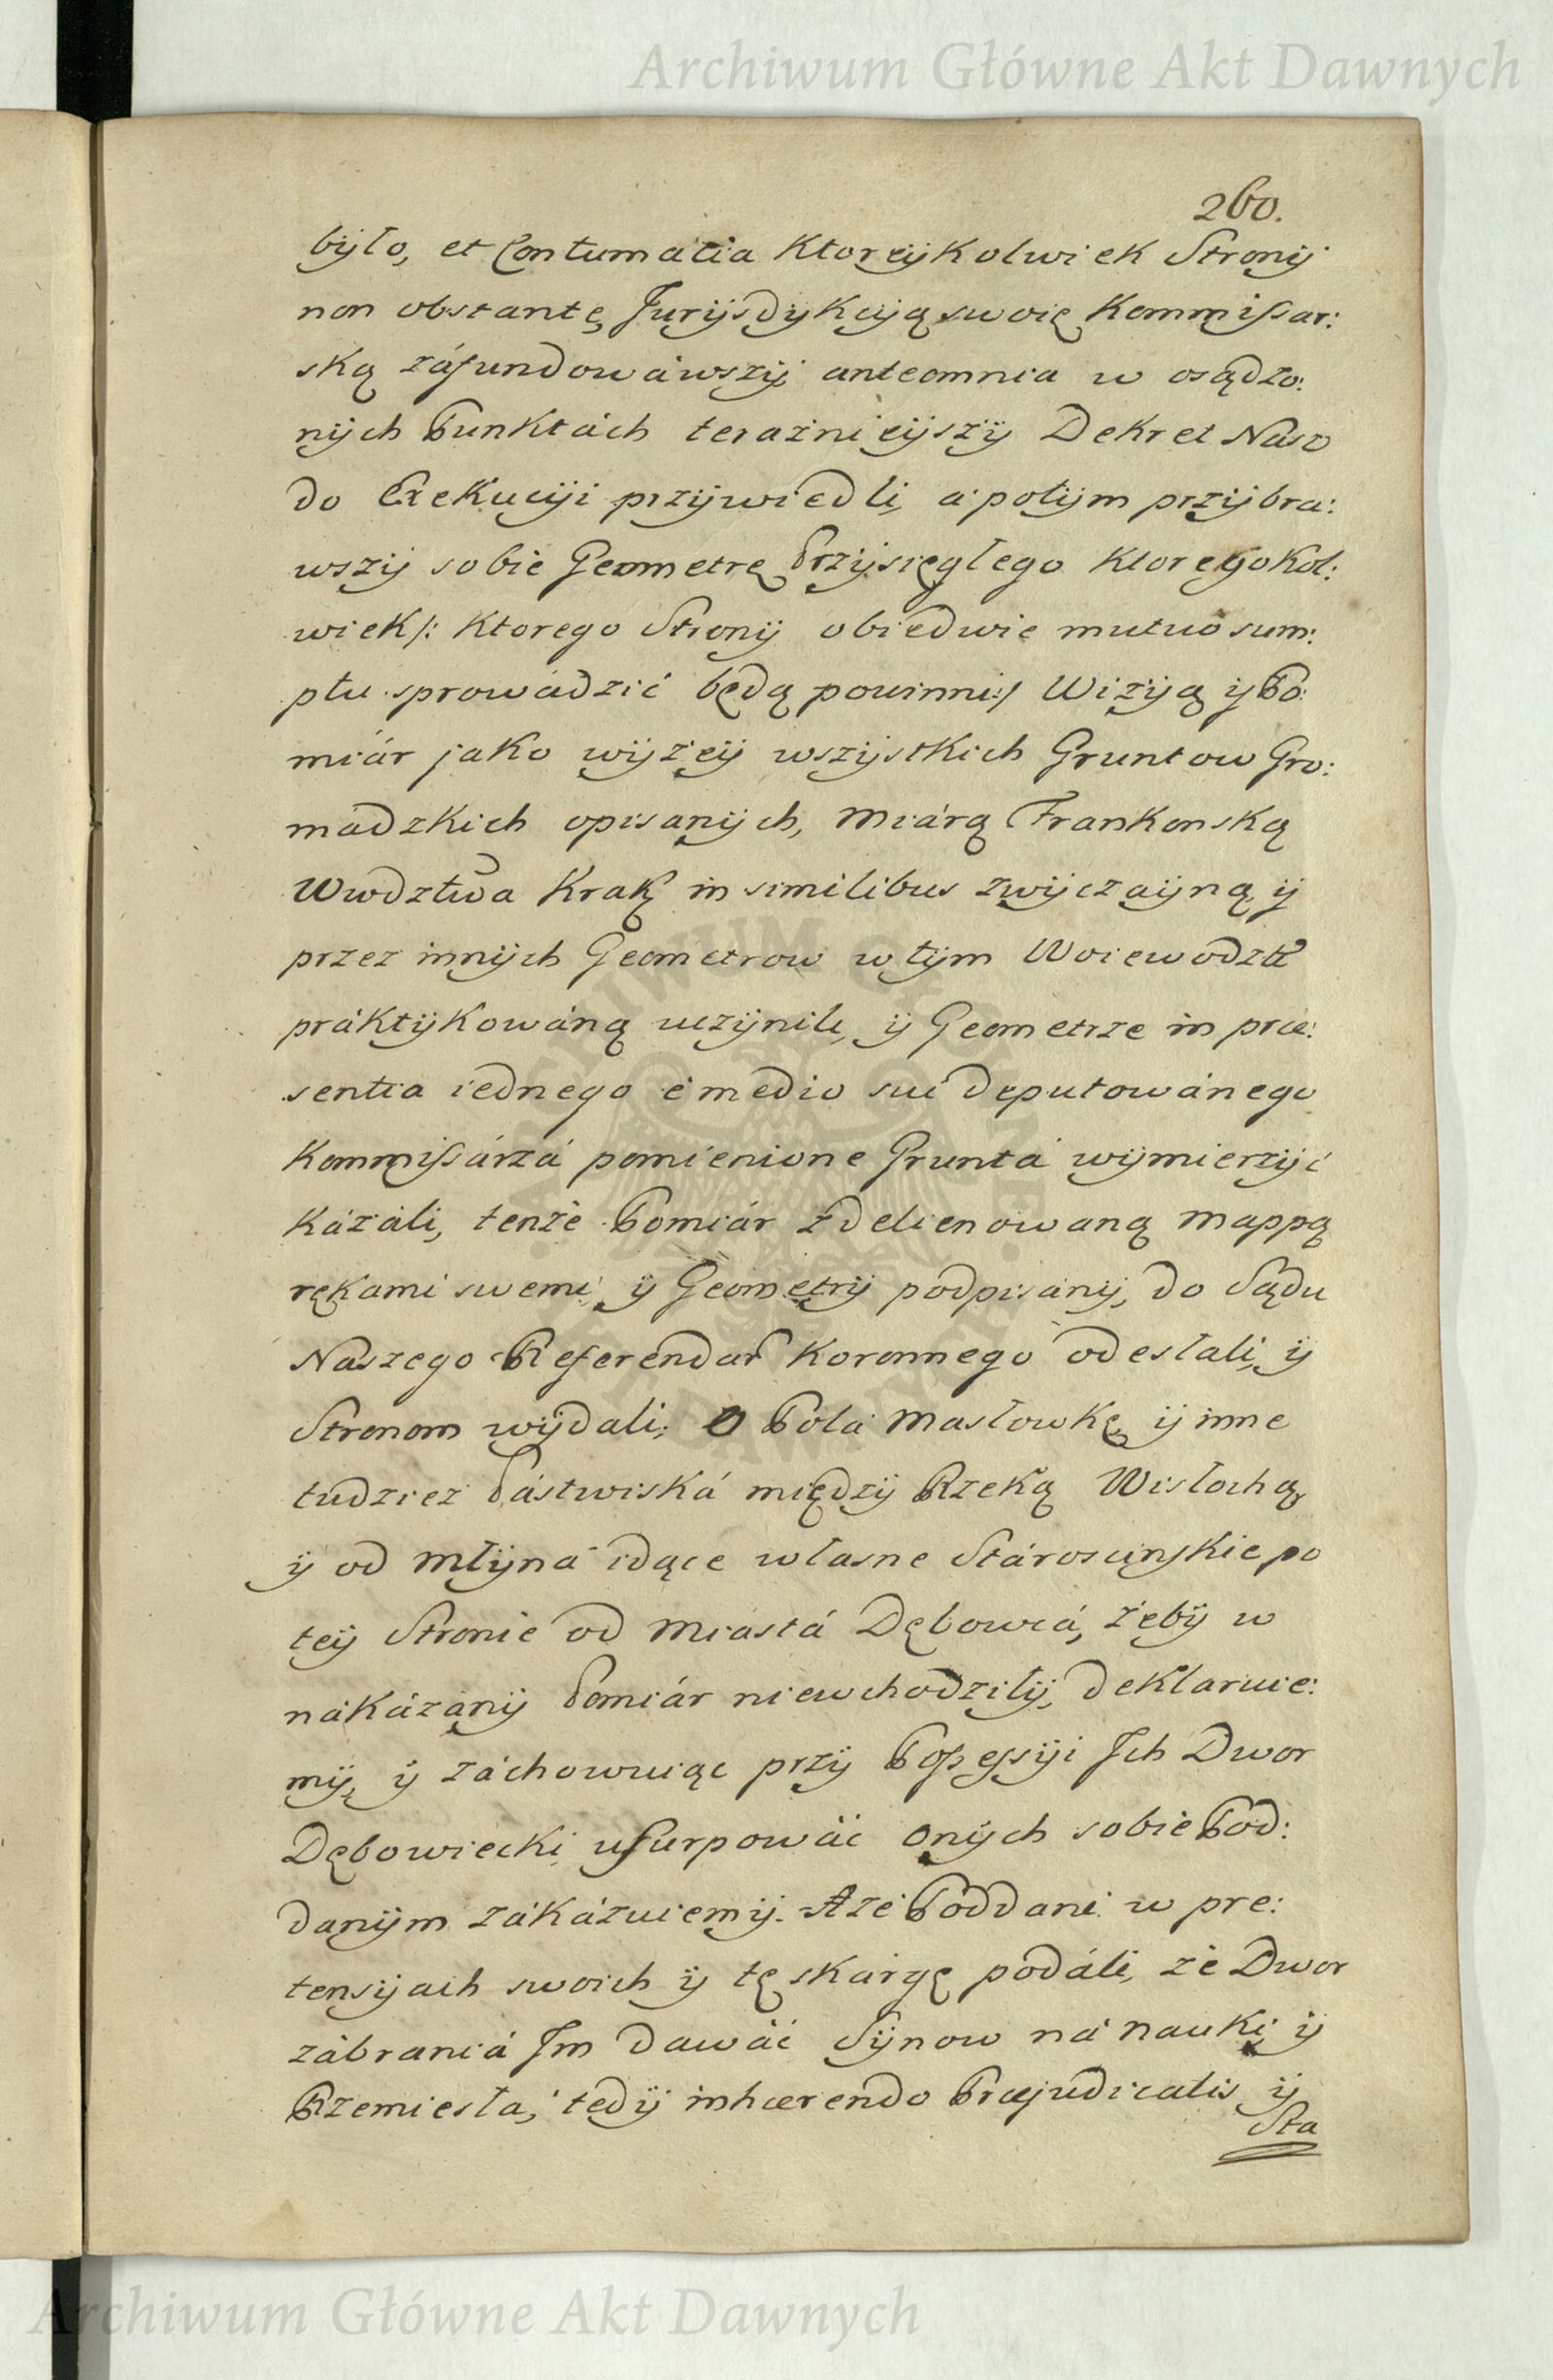 Archiwum Główne Akt Dawnych
260.
było, et Contumatia Ktoreykolwiek Strony
non obstante, Jurysdykcyą swoię Kommissar:
ską záfundowáwszy anteomnia w osądzo:
nych Punktách teraznieyszy Dekret Nasz
do Exekucyi przywiedli, a potym przybra:
wszy sobie Geometrę Przysięgłego Ktoregokol:
wiek /: Ktorego Strony obiedwie mutuo sum:
ptu sprowádzić będą powinni :/ Wizyą y Po:
miár jako wyżey wszystkich Gruntow Gro:
mádzkich opisanych, Miárą Frankonską
Wwdztwa Krak in similibus zwyczayną, y
przez innych Geometrow w tym Woiewodztt
práktykowáną uczynili, y Geometrze in præ:
sentia iednego e medio sui deputowánego
Kommissárzá pomienione Gruntá wymierzyć
Kázáli, tenże Pomiár z delienowaną Mappą
rękami swemi, y Geometry podpisány, do Sądu
Naszego Referendar Koronnego odesłali, y
Stronom wydali; O Pola Masłowkę, y inne
tudziez Pástwiská między Rzeką Wisłochą
y od Młyna idące własne Stároscinskie po
tey Stronie od Miastá Dębowcá, żeby w
nákázány Pomiár niewchodziły, deklaruie:
my, y záchowuiąc przy Possessyi Ich Dwor
Dębowiecki usurpowáć onych sobie Pod:
danym zákázuiemy. A że Poddani w pre:
tensyach swoich y tę skargę podáli, że Dwor
zábraniá Im dawáć Synow ná Nauki, y
Rzemiesła, tedy inhærendo Præjudicatis, y
Sta
Archiwum Główne Akt Dawnych